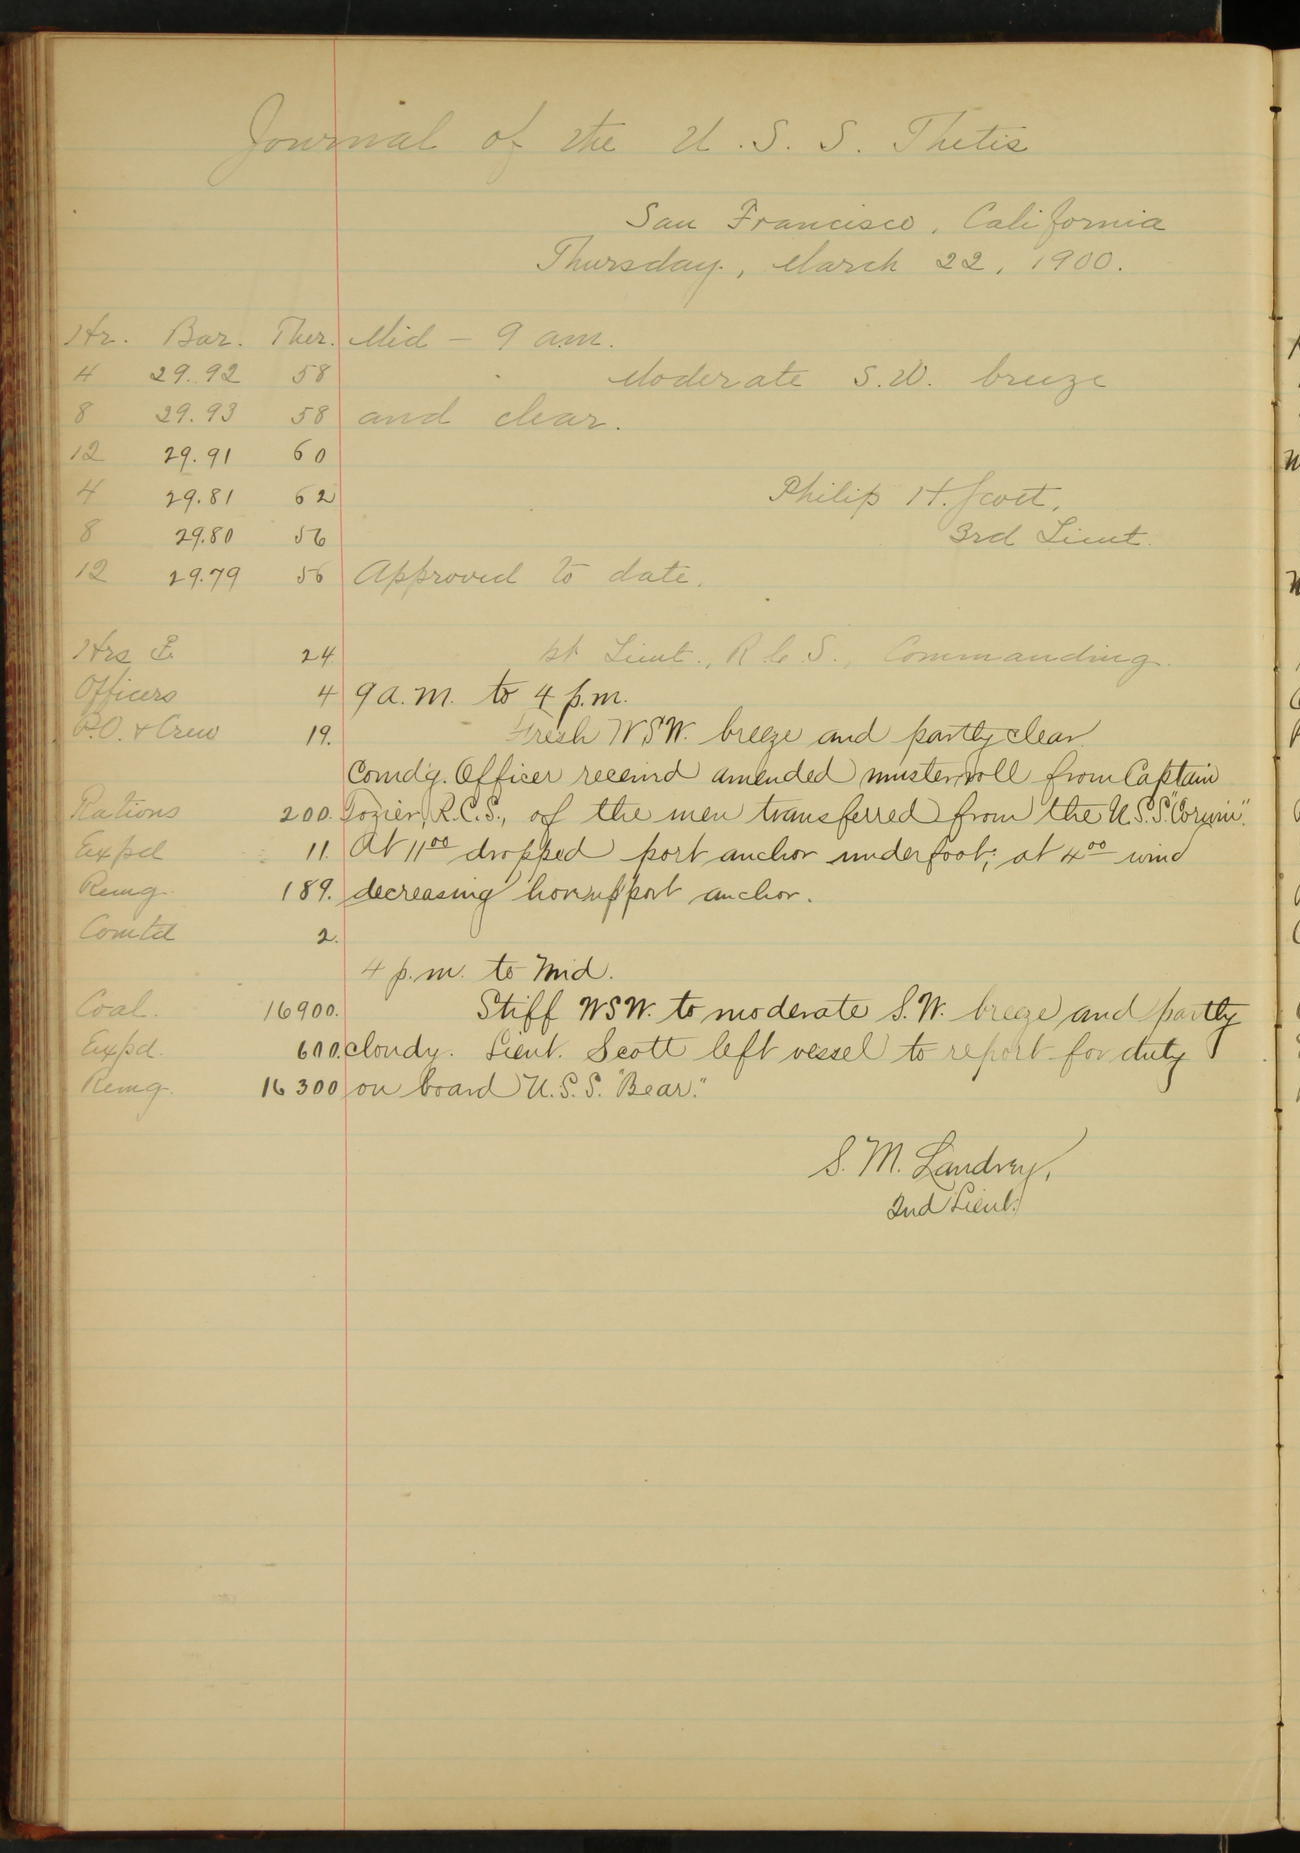 Journal of the U. S. S. Thetis
San Francisco, California
Thursday, March 22, 1900.
Hr. Bar. Ther. Mid – 9 a.m.
4 29.92 58 Moderate S.W. breeze
8 29.93 58 and clear.
12 29.91 60
4 29.81 62 Philip H. Scott,
8 29.80 56 3rd Lieut.
12 29.79 56 Approved to date.
Hrs 24 1st Lieut., R.C.S., Commanding.
Officers 4 9 a.m. to 4 p.m.
P.O. & Crew 19. Fresh WSW. breeze and partly clear
Comd'g. Officer received amended muster roll from Captain
Rations 200. Tozier, R.C.S., of the men transferred from the U.S.S. "Corwin".
Expd 11. At 11⁰⁰ dropped port anchor underfoot; at 4⁰⁰ wind
Remg. 189. decreasing hove up port anchor.
Comtd 2.
4 p.m. to Mid.
Coal. 16900. Stiff WSW. to moderate S.W. breeze and partly
Expd. 600. cloudy. Lieut. Scott left vessel to report for duty
Remg. 16300 on board U.S.S. "Bear."
S. M. Landrey,
2nd Lieut.